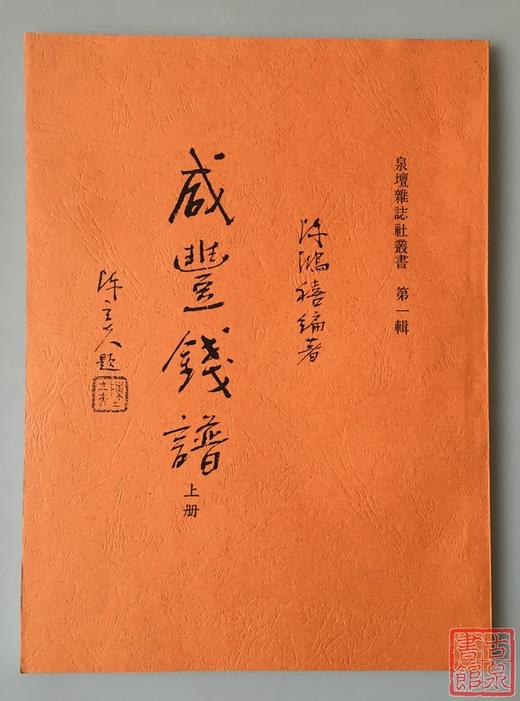 泉壇雜誌社叢書 第一輯
陈鴻禧編著
咸豐錢譜
上册
陈立夫題
古泉書館